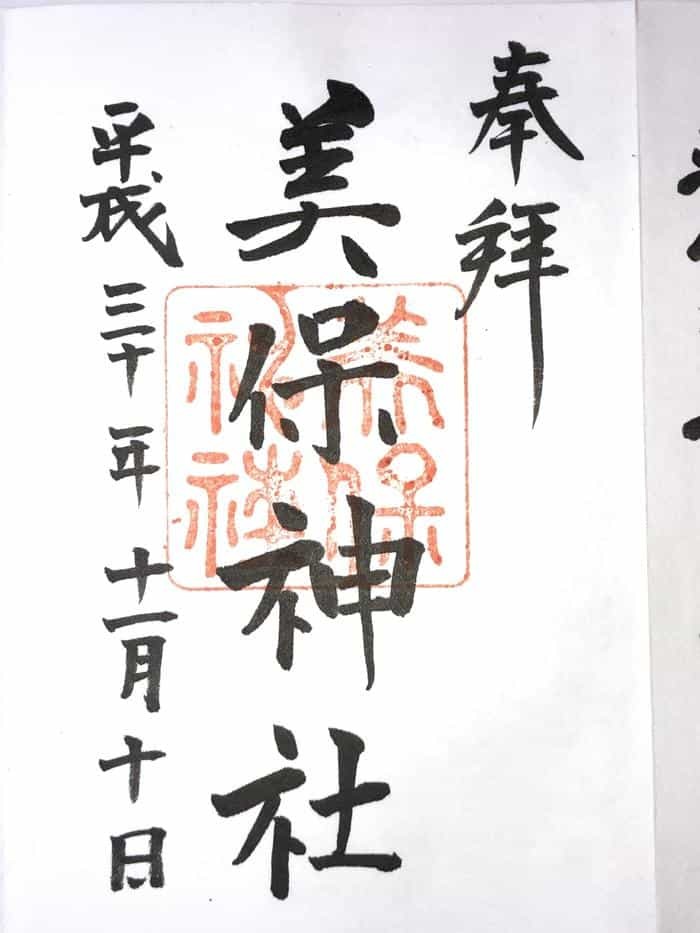 奉拝
美保神社
美保神社
平成三十年十一月十日